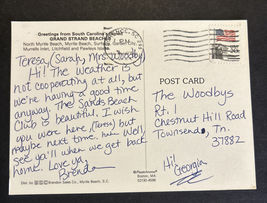 Greetings from South Carolina's
GRAND STRAND BEACHES
North Myrtle Beach, Myrtle Beach, Surfside, Garden City,
Murrells Inlet, Litchfield and Pawleys Island
Teresa, (Sarah, Mrs. Woodby)
Hi! The weather is
not cooperating at all, but
we're having a good time
anyway. The Sands Beach
Club is beautiful. I wish
you were here, (Terry) but
maybe next time. Well,
see ya'll when we get back
home. Love ya,
Brenda
POST CARD
The Woodbys
Rt. 1
Chestnut Hill Road
Townsend, Tn.
37882
Hi,
Georgia
Boston, MA
Dist. by Brandon Sales Co., Myrtle Beach, S.C.